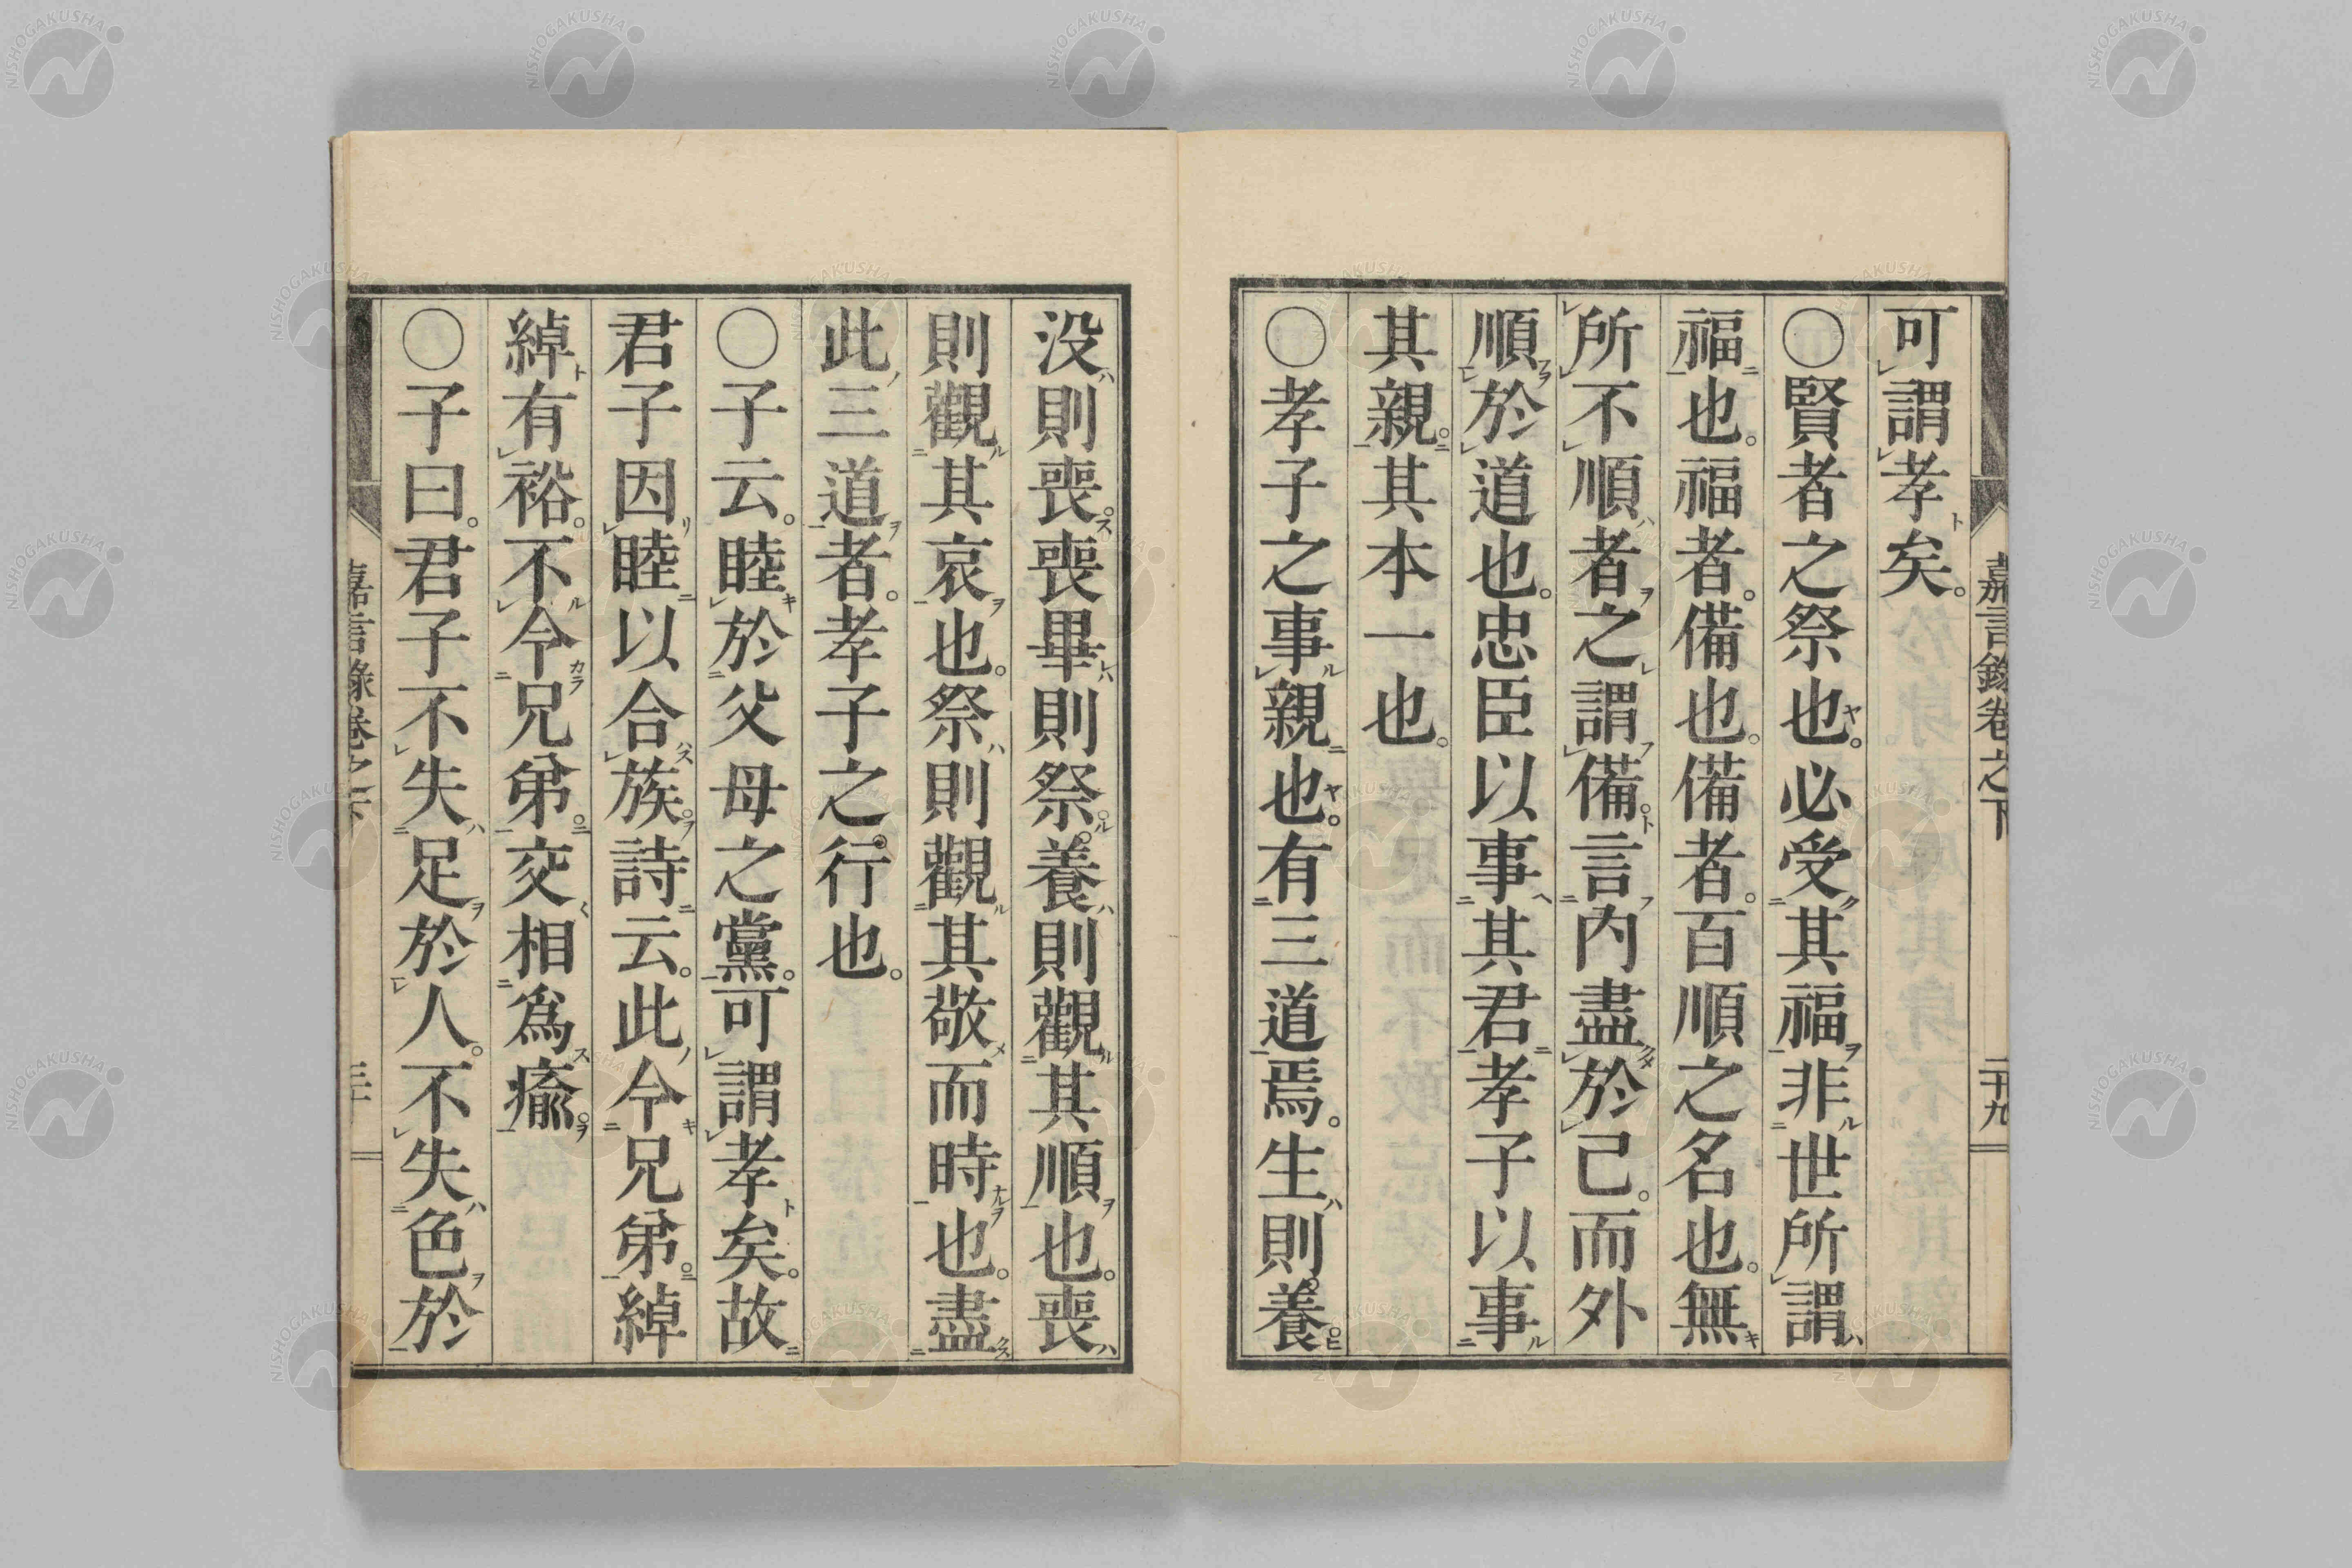 嘉言錄卷之下
二十九
可謂孝矣。
〇賢者之祭也。必受其福非世所謂
福也。福者。備也。備者。百順之名也。無
所不順者之謂備。言內盡於己。而外
順於道也。忠臣以事其君孝子以事
其親。其本一也。
〇孝子之事親也。有三道焉。生則養。
没則喪。喪畢則祭。養則觀其順也。喪
則觀其哀也。祭則觀其敬而時也。盡
此三道者。孝子之行也。
〇子云。睦於父母之黨。可謂孝矣。故
君子因睦以合族。詩云。此令兄弟。綽
綽有裕。不令兄弟。交相爲瘉。
〇子曰。君子不失足於人。不失色於
嘉言錄卷之下
三十